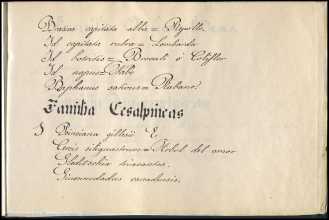 Brasica capitata alba = Repollo.
Id capitata rubra = Lombarda
Id botritis = Broculi ó Coliflor
Id napus = Nabo
Raphanus sativus = Rabano.
Familia Cesalpineas
Poinciana gillesii E.
Cercis siliquastrum = Arbol del amor
Gleditschia triacantos.
Gimnocladus canadensis.